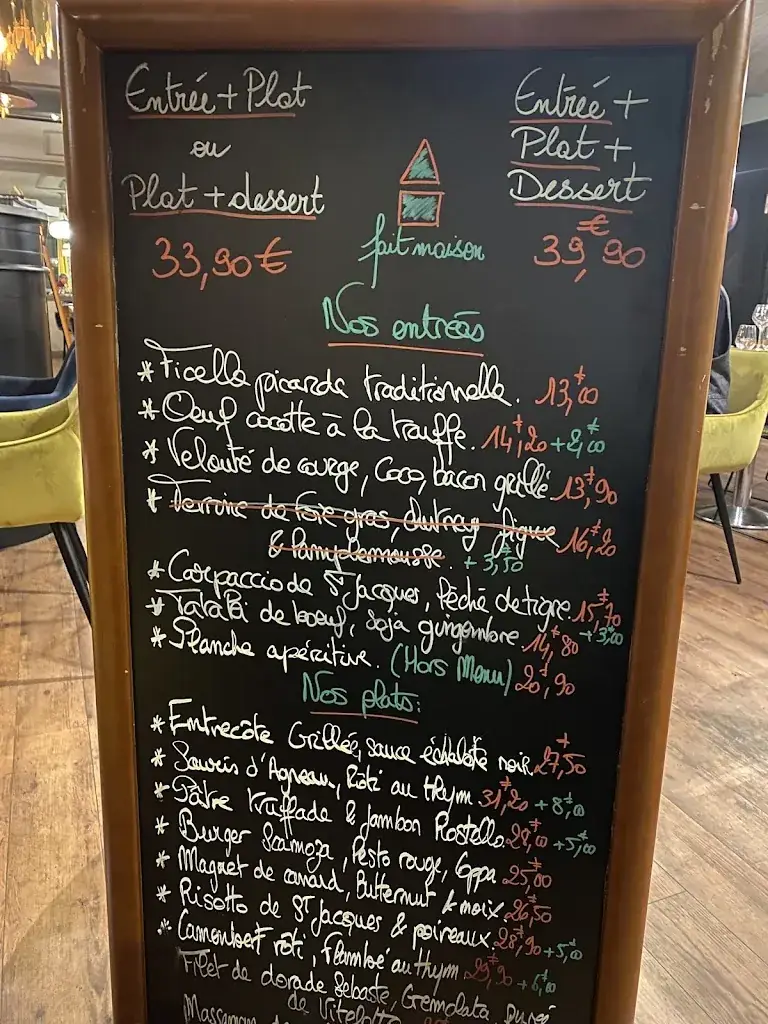 Entrée + Plat
ou
Plat + dessert
33,90 €
fait maison
Entrée +
Plat +
Dessert
39,90 €
Nos entrées
* Ficelle picarde traditionnelle. 13,00
* Oeuf cocotte à la truffe. 14,20 + 2,00
* Velouté de courge, Coco, bacon grillé 13,90
* Terrine de foie gras, chutney figue 16,20
& Pamplemousse. + 3,50
* Carpaccio de St Jacques, Pêche de tigre. 15,70 + 3,00
* Tataki de boeuf, soja gingembre. 14,80
* Planche apéritive. (Hors Menu) 20,90
Nos plats:
* Entrecôte Grillée, sauce échalote noir. 27,50
* Souris d'Agneau, Rôti au thym 31,20 + 8,00
* Pâtre truffade & jambon Rostello + 5,00
* Burger Scamoza, Pesto rouge, Coppa 25,00
* Magret de canard, Butternut & noix. 26,50
* Risotto de St Jacques & poireaux. 28,90 + 5,00
* Camembert rôti, Flambé au thym 29,90 + 6,00
Filet de dorade Sebaste, Gemolata, Purée
de Vitelotte